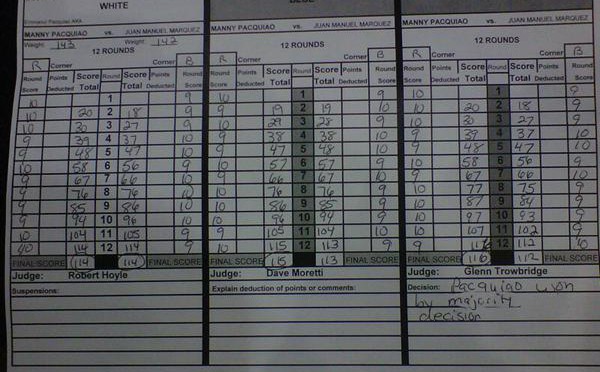 WHITE
MANNY PACQUIAO vs. JUAN MANUEL MARQUEZ
Weight: 143 Weight: 142
12 ROUNDS
R Corner Corner B
Round Score Points Deducted Score Total Round Score Total Points Deducted Round Score
10 1 9
10 20 2 18 9
10 30 3 27 9
9 39 4 37 10
9 48 5 47 10
10 58 6 56 9
9 67 7 66 10
9 76 8 76 10
9 85 9 86 10
9 94 10 96 10
10 104 11 105 9
10 114 12 114 9
FINAL SCORE 114 114 FINAL SCORE
Judge: Robert Hoyle
Suspensions:
MANNY PACQUIAO vs. JUAN MANUEL MARQUEZ
12 ROUNDS
R Corner Corner B
Round Score Points Deducted Score Total Round Score Total Points Deducted Round Score
10 1 9
9 19 2 19 10
10 29 3 28 9
9 38 4 38 10
9 47 5 48 10
10 57 6 57 9
9 66 7 67 10
10 76 8 76 9
10 86 9 85 9
10 96 10 94 9
9 105 11 104 10
10 115 12 113 9
FINAL SCORE 115 113 FINAL SCORE
Judge: Dave Moretti
Explain deduction of points or comments:
MANNY PACQUIAO vs. JUAN MANUEL MARQUEZ
12 ROUNDS
R Corner Corner B
Round Score Points Deducted Score Total Round Score Total Points Deducted Round Score
10 1 9
10 20 2 18 9
10 30 3 27 9
9 39 4 37 10
9 48 5 47 10
10 58 6 56 9
9 67 7 66 10
10 77 8 75 9
10 87 9 84 9
10 97 10 93 9
10 107 11 102 9
9 116 12 112 10
FINAL SCORE 116 112 FINAL SCORE
Judge: Glenn Trowbridge
Decision: Pacquiao won
by majority
decision